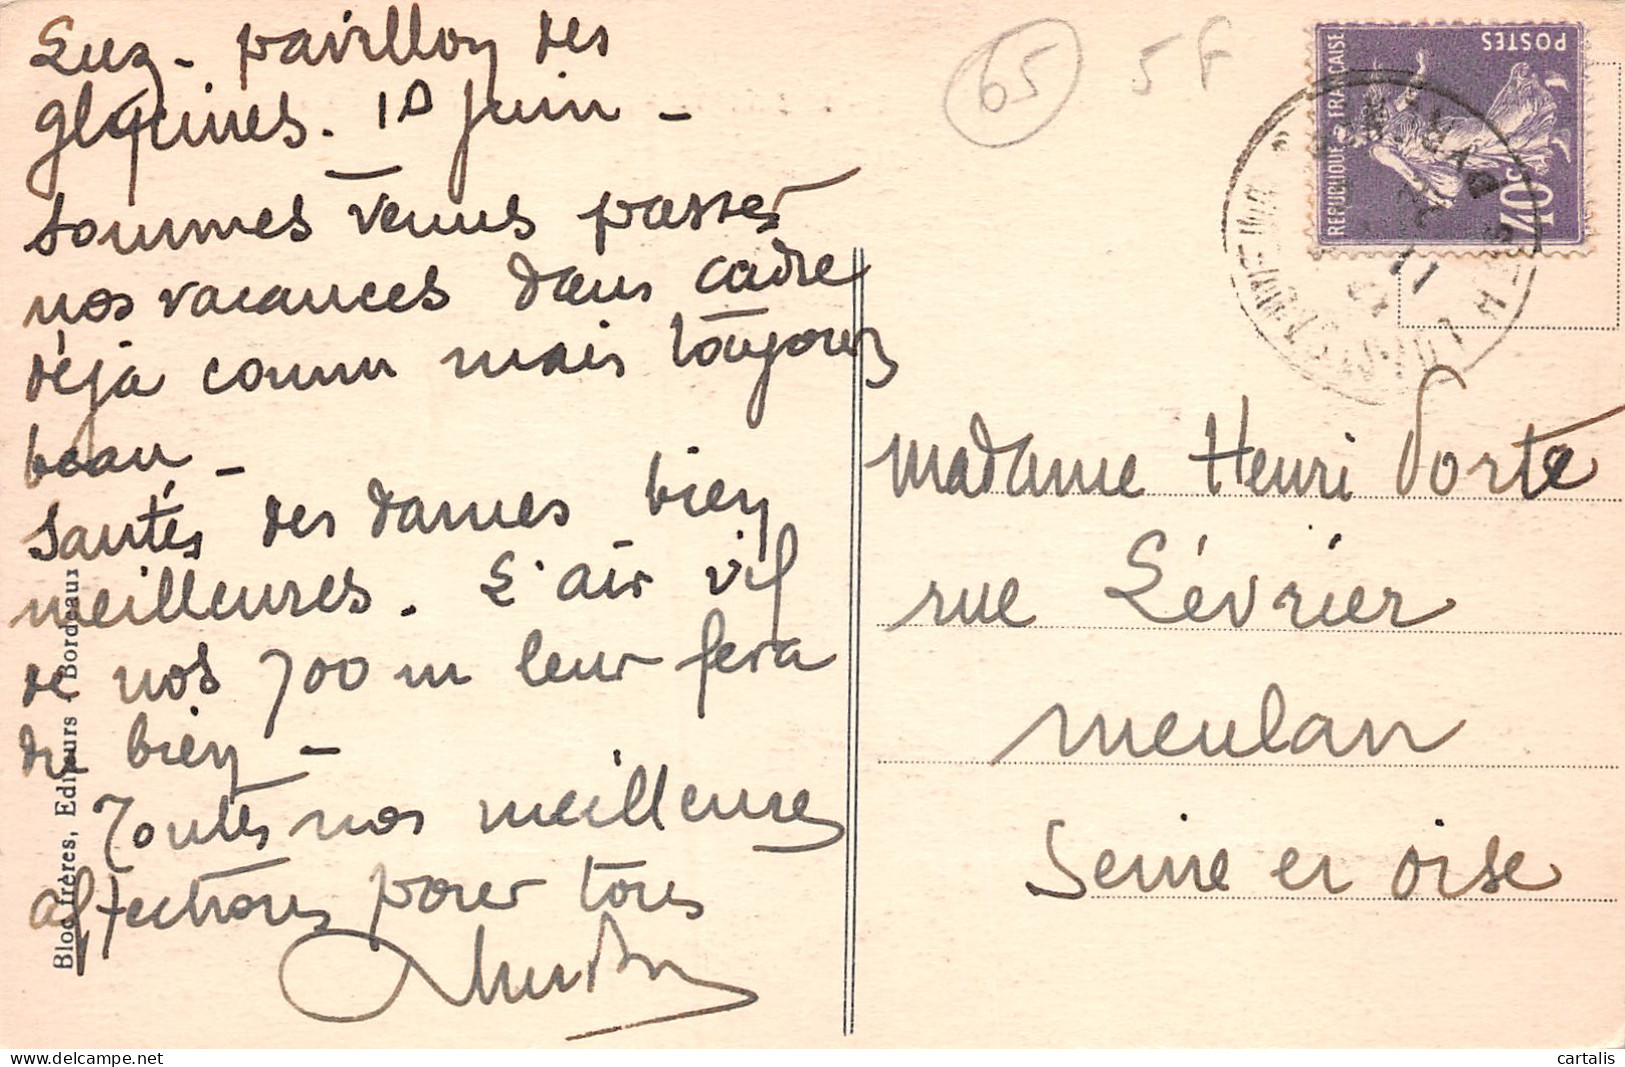 Luz - pavillon des
glycines. 10 Juin -
Sommes venus passer
nos vacances dans cadre
déjà connu mais toujours
beau -
Santés des dames bien
meilleures. L'air vif
de nos 700 m leur fera
du bien -
Toutes nos meilleures
affections pour tous
65
5 F
POSTES
REPUBLIQUE FRANÇAISE
40c
Madame Henri Porte
rue Lévrier
Meulan
Seine et Oise
Bloc frères, Editeurs - Bordeaux
cartalis